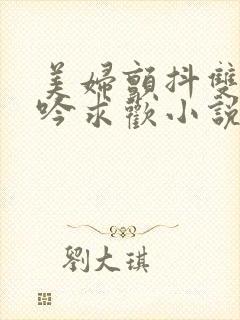 美婦顫抖雙
吟求歡小說
劉大琪